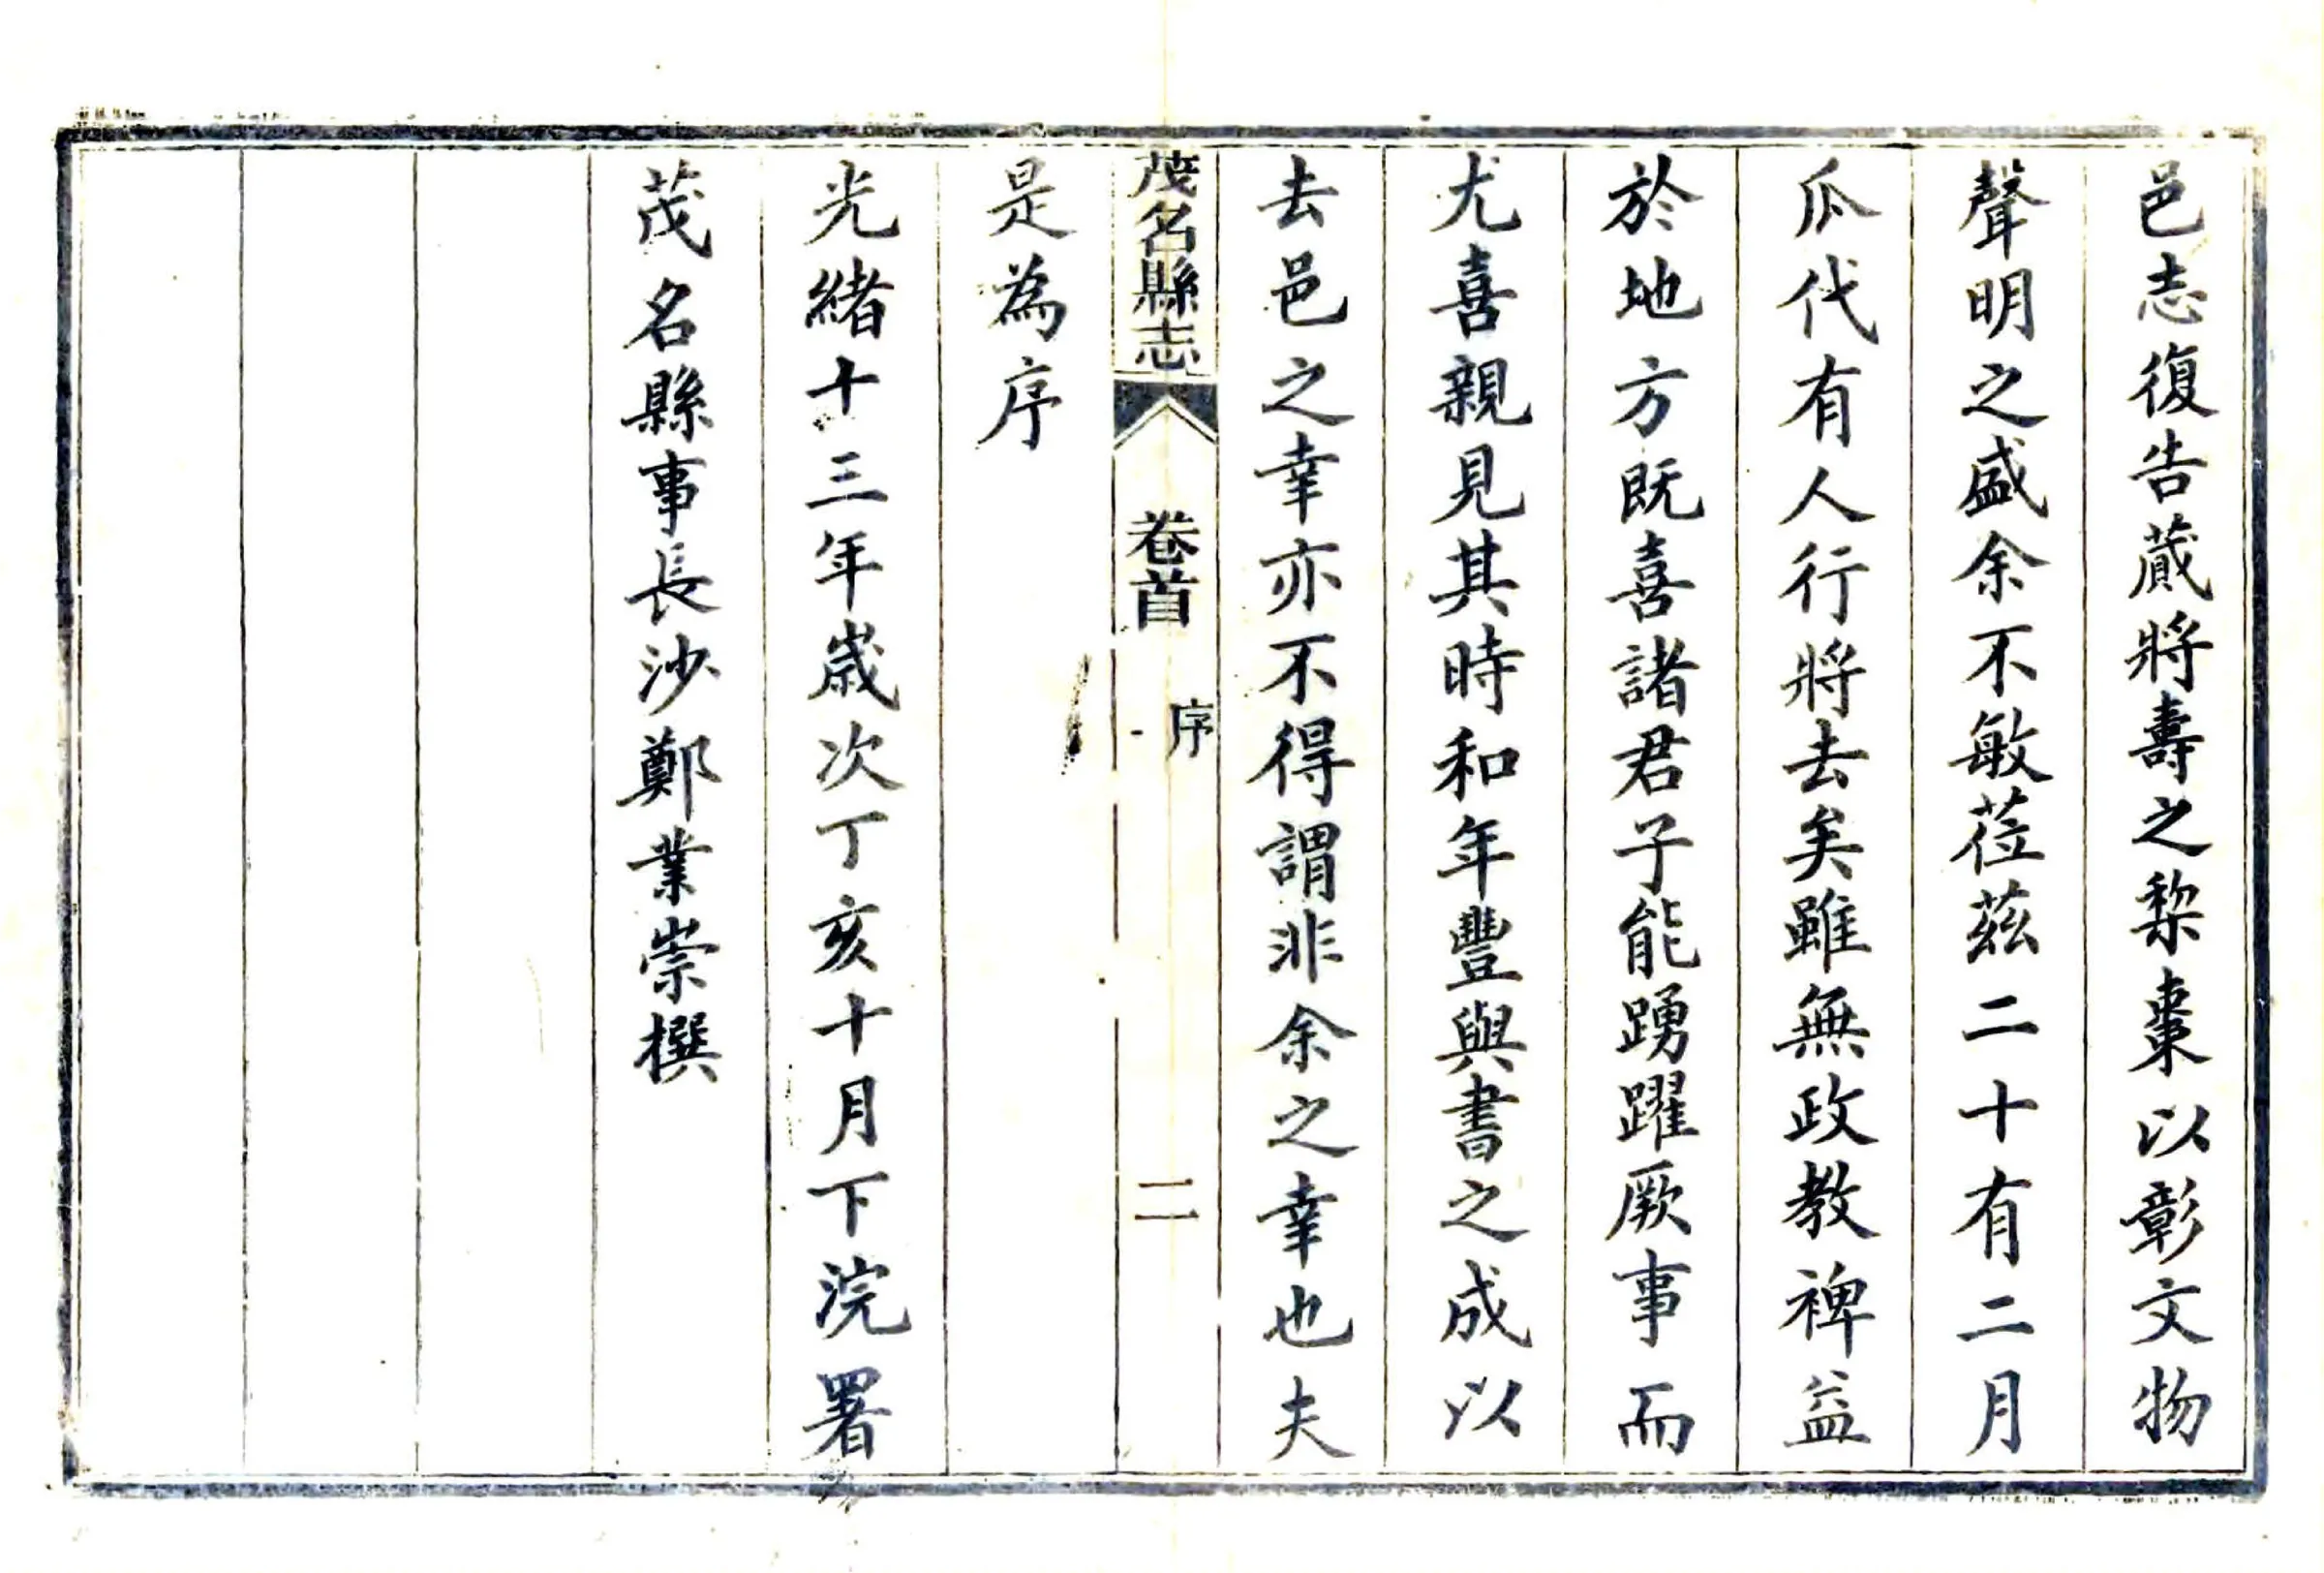 邑志復告蕆將壽之棃棗以彰文物
聲明之盛余不敏莅茲二十有二月
瓜代有人行將去矣雖無政教裨益
於地方既喜諸君子能踴躍厥事而
尤喜親見其時和年豐與書之成以
去邑之幸亦不得謂非余之幸也夫
茂名縣志 卷首 序 二
是為序
光緒十三年歲次丁亥十月下浣署
茂名縣事長沙鄭業崇撰